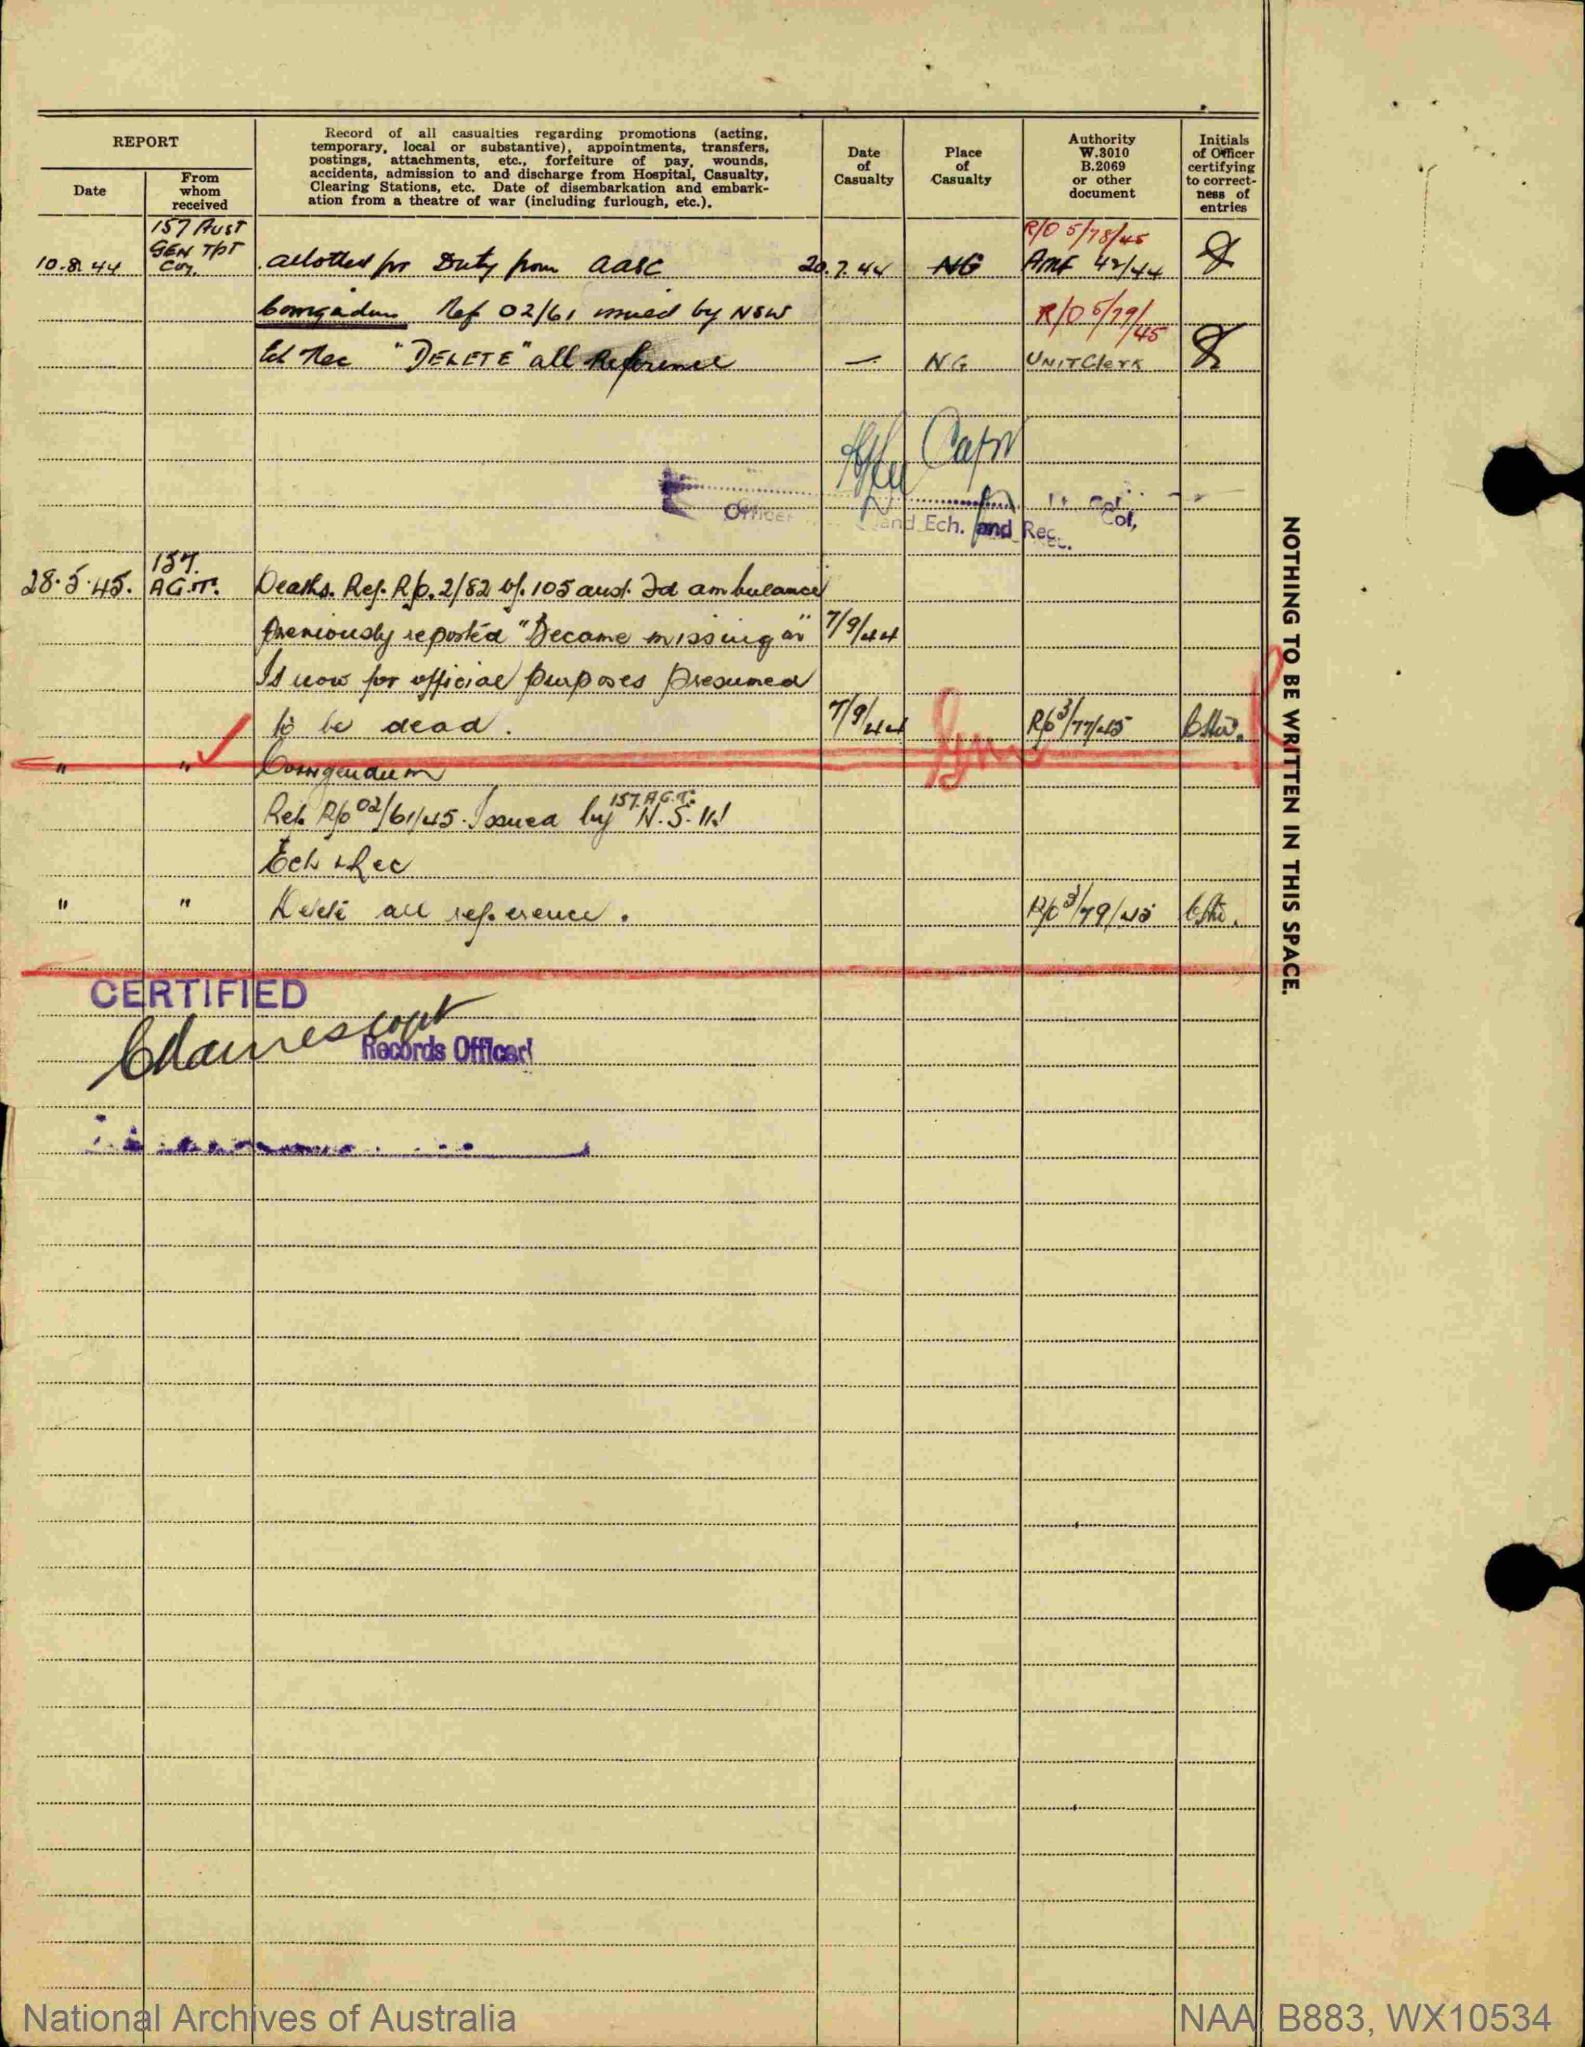 REPORT
Date
From
whom
received
Record of all casualties regarding promotions (acting,
temporary, local or substantive), appointments, transfers,
postings, attachments, etc., forfeiture of pay, wounds,
accidents, admission to and discharge from Hospital, Casualty,
Clearing Stations, etc. Date of disembarkation and embark-
ation from a theatre of war (including furlough, etc.).
Date
of
Casualty
Place
of
Casualty
Authority
W.3010
B.2069
or other
document
Initials
of Officer
certifying
to correct-
ness of
entries
157 AUST
GEN TPT
Coy.
R/O 5/78/45
10.8.44 allotted for Duty from AASC 20.7.44 NG AMF 42/44
Corrigendum Ref 02/61 issued by NSW R/O 5/79/45
Ech Rec "DELETE" all Reference — NG UNIT Clerk
Capt
Officer
and Ech. and Rec.
Col,
157.
28.5.45. A.G.T. Deaths. Ref. R/o. 2/82 of. 105 aust. Fd ambulance
Previously reported "Became missing on" 7/9/44
Is now for official purposes presumed
to be dead. 7/9/44 R/o 3/77/45
" " Corrigendum
157. A.G.T.
Ref. R/o 02/61/45. Issued by N.S.W
Ech & Rec
" " Delete all reference. R/o 3/79/45
CERTIFIED
Capt
Records Officer
NOTHING TO BE WRITTEN IN THIS SPACE.
National Archives of Australia
NAA: B883, WX10534